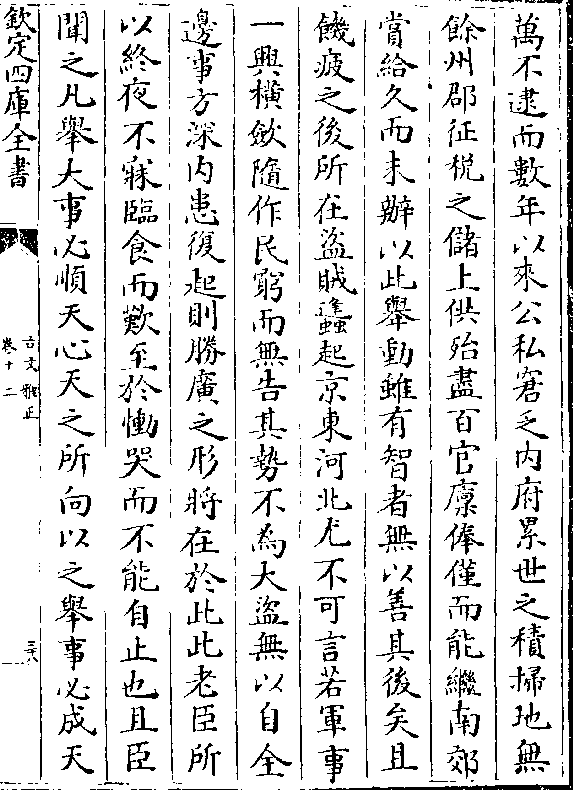 萬不逮而數年以來公私窘乏内府累世之積掃地無
餘州郡征税之儲上供殆盡百官廪俸僅而能繼南郊
賞給久而未辦以此舉動雖有智者無以善其後矣且
饑疲之後所在盗賊蠭起京東河北尤不可言若軍事
一興横斂隨作民窮而無告其勢不為大盗無以自全
邊事方深内患復起則勝廣之形將在於此此老臣所
以終夜不寐臨食而歎至於慟哭而不能自止也且臣
聞之凡舉大事必順天心天之所向以之舉事必成天
欽定四庫全書
古文雅正
卷十二
三十八